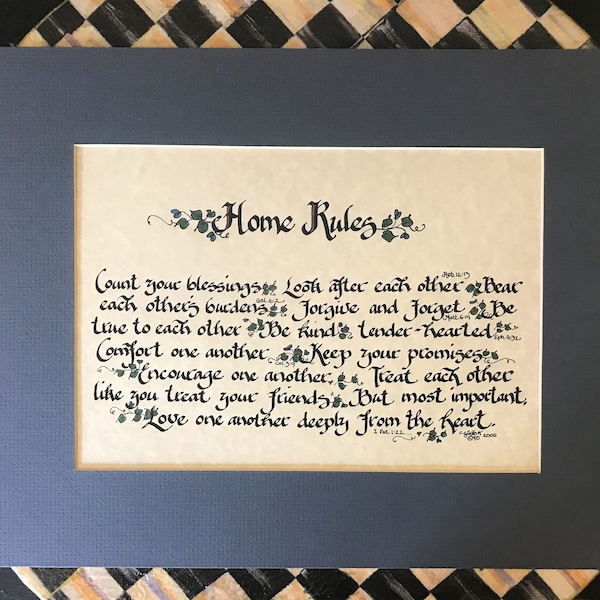 Home Rules
Count your blessings Look after each other Bear
each other's burdens Gal. 6:2 Forgive and Forget Be
true to each other Be kind tender-hearted Eph. 4:32
Comfort one another Keep your promises
Encourage one another, Treat each other
like you treat your friends But most important,
Love one another deeply from the heart.
I Pet. 1:22 2005